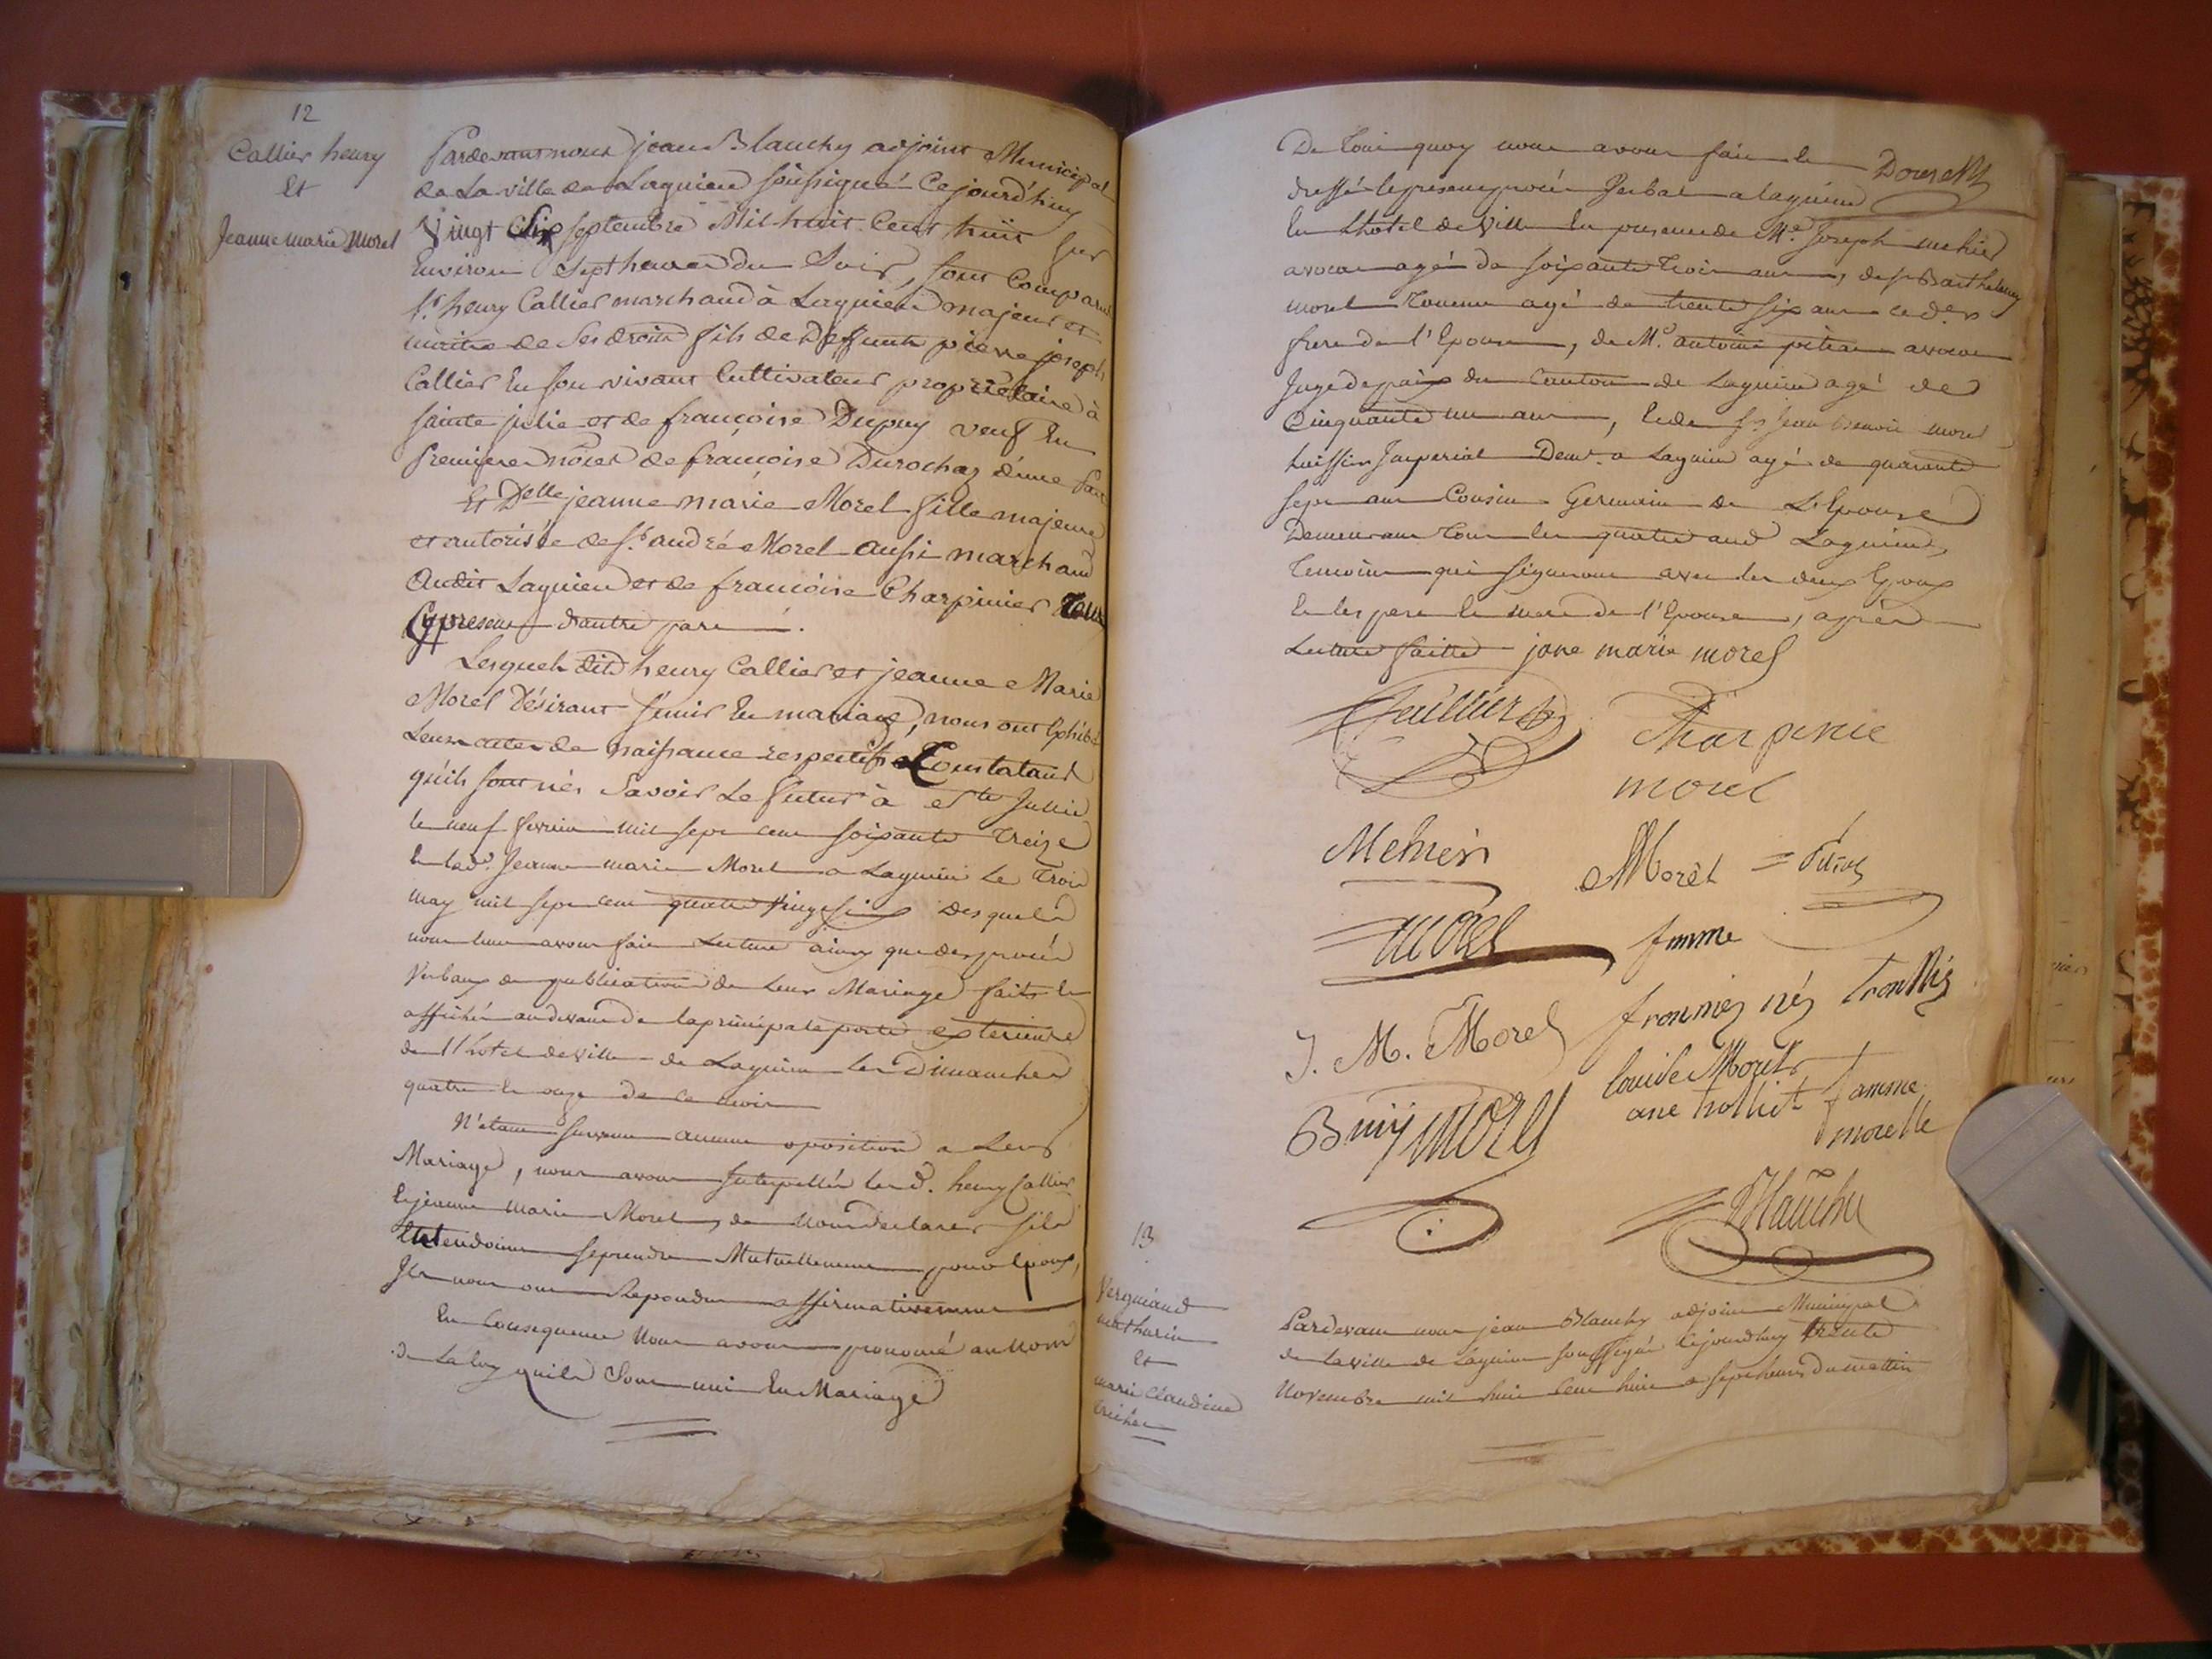 12
Callier henry
Et
Jeanne marie Morel
Pardevant nous jean Blanchy adjoint Municipal
de La ville de Lagnieu soussigné Cejourd'huy
Vingt Six septembre Mil huit Cent huit sur
Environ Sept heures du Soir, sont Comparus
Sr. henry Callier marchand à Lagnieu majeur et
maitre de Ses droits fils de Deffunts pierre joseph
Callier En son vivant Cultivateur propriétaire à
sainte julie et de françoise Dupuy veuf En
premiere nôces de françoise Durochaz d'une part
Et Delle jeanne marie Morel fille majeure
et autorisée de Sr. andré Morel aussi marchand
Audit Lagnieu et de francoise Charpinier Tous
Cy present d'autre part.
Lesquels dits henry Callier et jeanne Marie
Morel Désirant s'unir En mariage, nous ont Exhibé
Leurs actes de naissance respectifs Constatand
qu'ils sont nés Savoir Le futur à Ste Jullie
le neuf fevrier mil sept cent soixante treize
Et lad. Jeanne marie Morel a Lagnieu Le Trois
may mil sept cent quatre vingt six Desquels
nous leur avons fait Lecture ainsy que des procés
Verbaux de publication de Leur Mariage faits Et
affichés au devant de la principale porte exterieure
de l'hotel de ville de Lagnieu les Dimanches
quatre Et onze de Ce mois
N'étant survenu aucune oposition a Leur
Mariage, nous avons Interpellés lesd. henry Callier
Et jeanne Marie Morel, de nous declarer s'ils
Entendoient se prendre Mutuellement pour Epoux,
Ils nous ont Repondu affirmativement
En Consequence Nous avons prononcé au Nom
de La loy quils Sont uni En Mariage
De Tout quoy nous avons fait Et
dressé le present procés Verbal a lagnieu
En L'hotel de Ville En presence de Me. Joseph mehier
avocat agé de soixante trois ans, de sr Barthelemy
morel agé de trente six ans
frere de l'Epouse, de Me. antoine avocat
Juge de paix du Canton de Lagnieu agé de
Cinquante un ans, Et de sr Jean Benoit morel
huissier Imperial Demt. a Lagnieu agé de quarante
sept ans Cousin Germain de L'Epouse
Demeurant tous les quatre aud Lagnieu,
Temoins qui signeront avec les deux Epoux
Et les pere Et mere de l'Epouse, après
Lecture faitte jane marie morel
Charpinie
morel
Mehier
Morel
morel
femme
J. M. Morel
louise Morel
ane trolliet famme
morelle
Bmy morel
Blanchy
13
Verguiand
mathurin
Et
marie Claudine
Pardevant nous jean Blanchy adjoint Municipal
de la ville de Lagnieu soussigné Cejourdhuy trente
Novembre mil huit Cent huit a sept heures du mattin